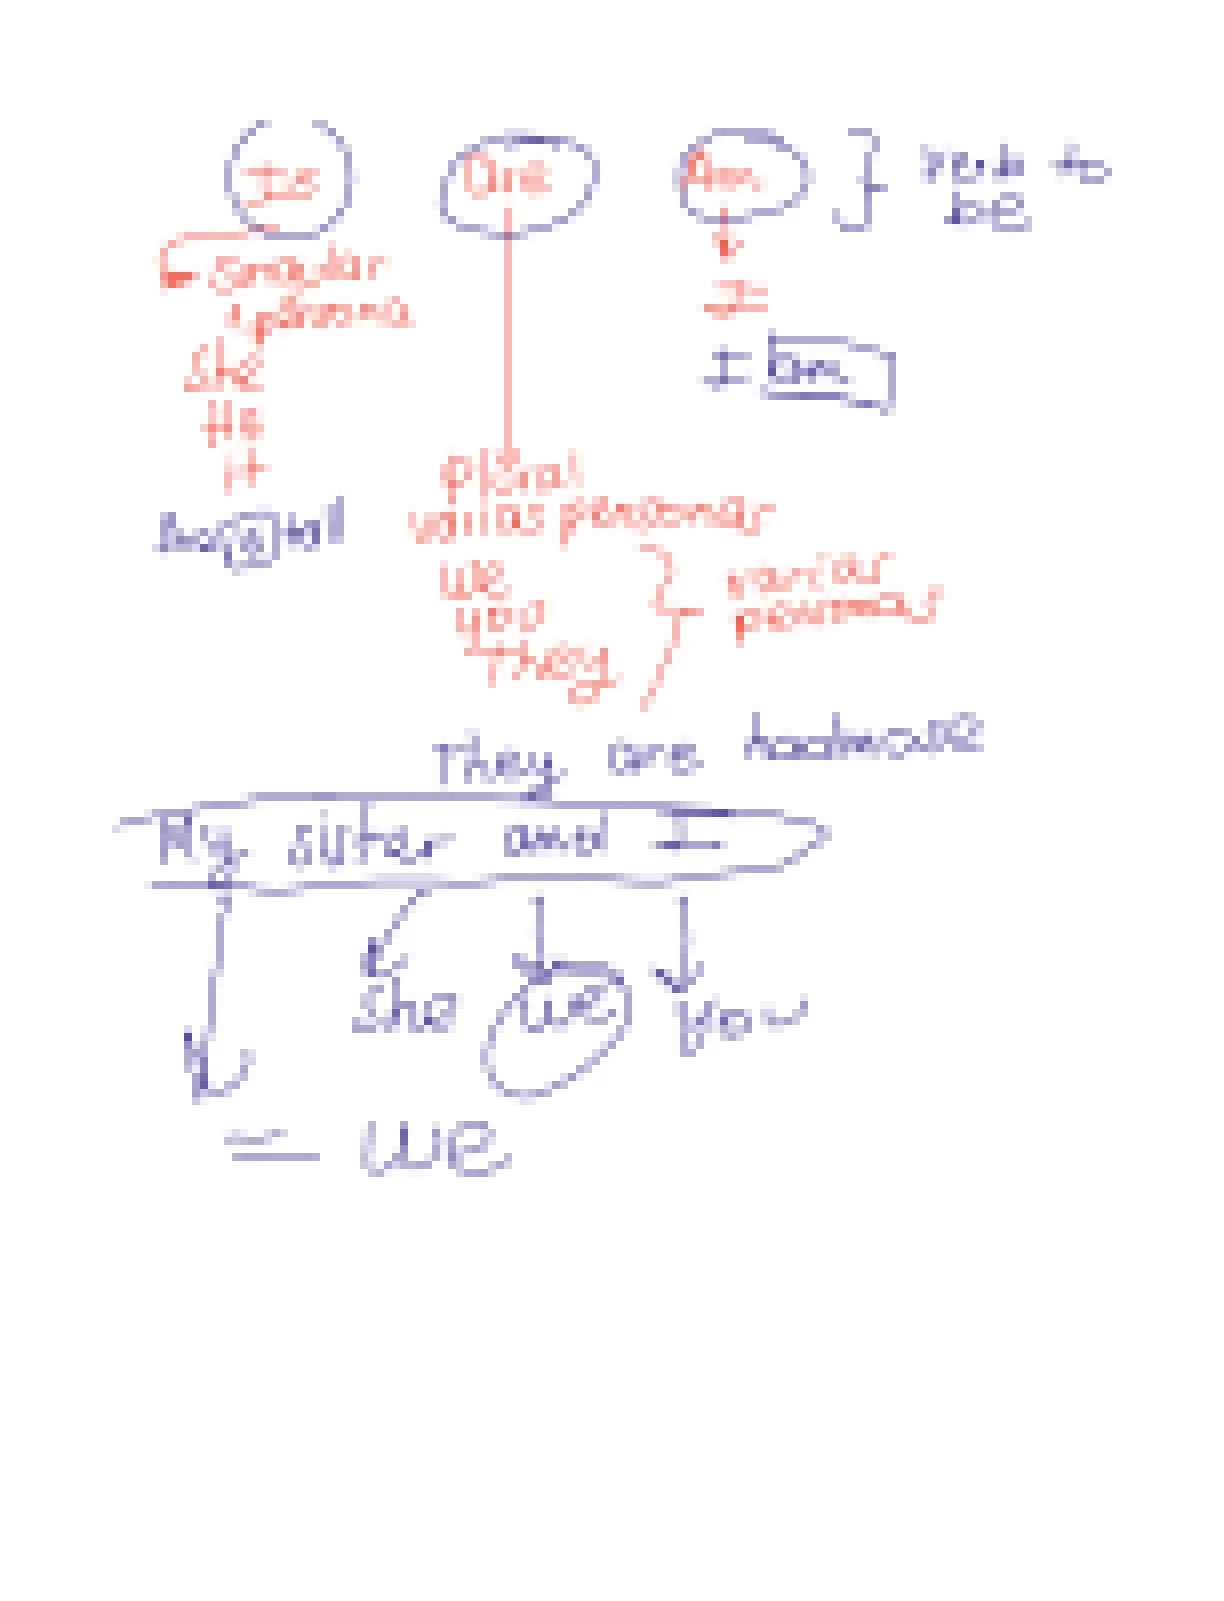 Is Are Am } Verb to be
singular
1 persona
She
He
it
is tall
I
I am
plural
varias personas
we
you
They
varias
personas
They are
My sister and I
she we you
= we